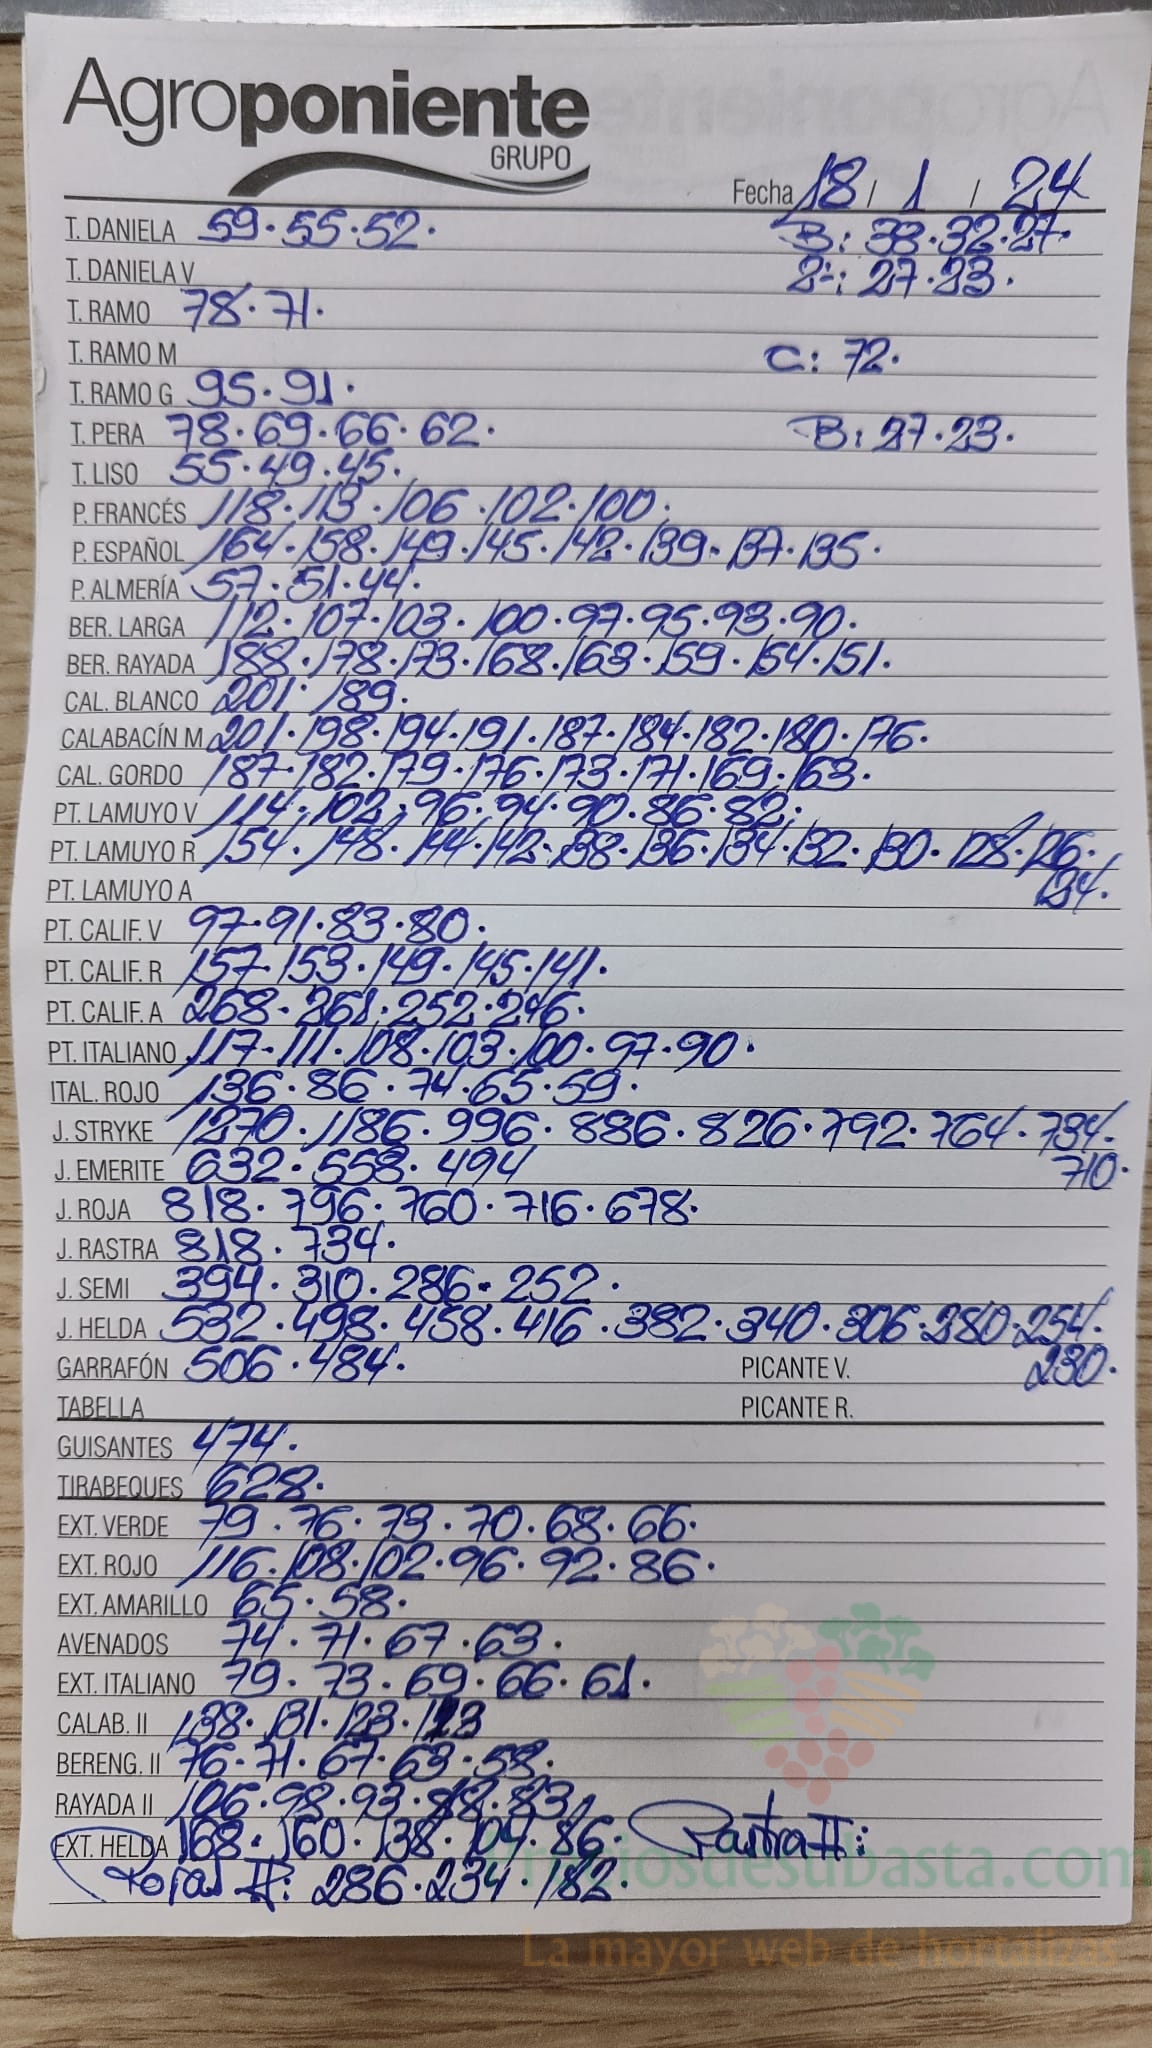 Agroponiente
GRUPO
Fecha 18 / 1 / 24
T. DANELA 59.55.52. B: 38.32.27.
T. DANIELA V 2ª: 27.23.
T. RAMO 78.71.
T. RAMO M C: 72.
T. RAMO G 95.91.
T. PERA 78.69.66.62. B: 27.23.
T. LISO 55.49.45.
P. FRANCÉS 118.113.106.102.100.
P. ESPAÑOL 164.158.149.145.142.139.137.135.
P. ALMERÍA 57.51.44.
BER. LARGA 112.107.103.100.97.95.93.90.
BER. RAYADA 188.178.173.168.163.159.154.151.
CAL. BLANCO 201.189.
CALABACÍN M 201.198.194.191.187.184.182.180.176.
CAL. GORDO 187.182.179.176.173.171.169.163.
PT. LAMUYO V 114.102.96.94.90.86.82.
PT. LAMUYO R 154.148.144.142.138.136.134.132.130.128.126.
PT. LAMUYO A 124.
PT. CALIF. V 97.91.83.80.
PT. CALIF. R 157.153.149.145.141.
PT. CALIF. A 268.261.252.246.
PT. ITALIANO 117.111.108.103.100.97.90.
ITAL. ROJO 136.86.74.65.59.
J. STRYKE 1270.1186.996.886.826.792.764.734.
J. EMERITE 632.558.494 710.
J. ROJA 818.796.760.716.678.
J. RASTRA 818.734.
J. SEMI 394.310.286.252.
J. HELDA 532.498.458.416.382.340.306.280.254.
GARRAFÓN 506.484. PICANTE V. 230.
TABELLA PICANTE R.
GUISANTES 474.
TIRABEQUES 628.
EXT. VERDE 79.76.73.70.68.66.
EXT. ROJO 116.108.102.96.92.86.
EXT. AMARILLO 65.58.
AVENADOS 74.71.67.63.
EXT. ITALIANO 79.73.69.66.61.
CALAB. II 138.131.123.113
BERENG. II 76.71.67.63.58.
RAYADA II 106.98.93.88.83.
EXT. HELDA 168.160.138.104.86. Rastra II:
Rojas II: 286.234.182.
preciosdesubasta.com
La mayor web de hortalizas